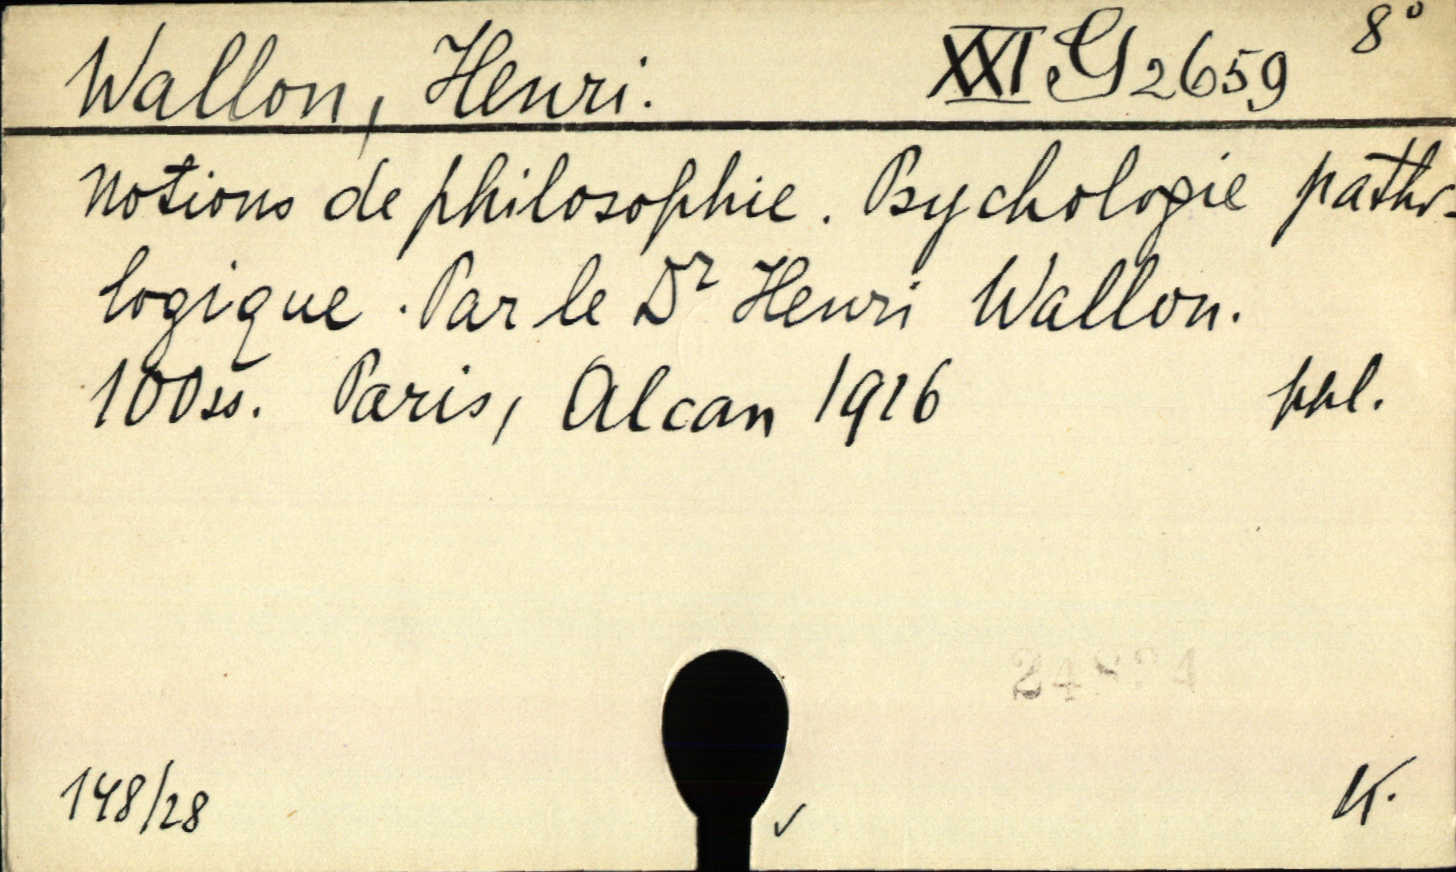 Wallon, Henri. XXI G 2659 8°
Notions de philosophie. Psychologie patho-
logique. Par le Dr Henri Wallon.
100 ss. Paris, Alcan 1916 ppl.
148/28 K.